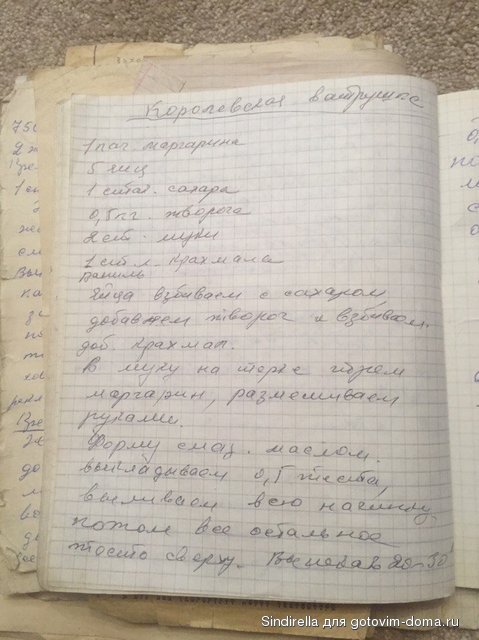 Королевская ватрушка
1 пач. маргарина
5 яиц
1 стак. сахара
0,5 кг. творога
2 ст. муки
1 ст. л. крахмала
Ваниль
Яйца взбиваем с сахаром,
добавляем творог и взбиваем.
доб. крахмал.
В муку на терке трем
маргарин, размешиваем
руками.
Форму смаз. маслом.
выкладываем 0,5 теста,
выливаем всю начинку,
потом все остальное
тесто сверху. Выпекать 20-30
Sindirella для gotovim-doma.ru